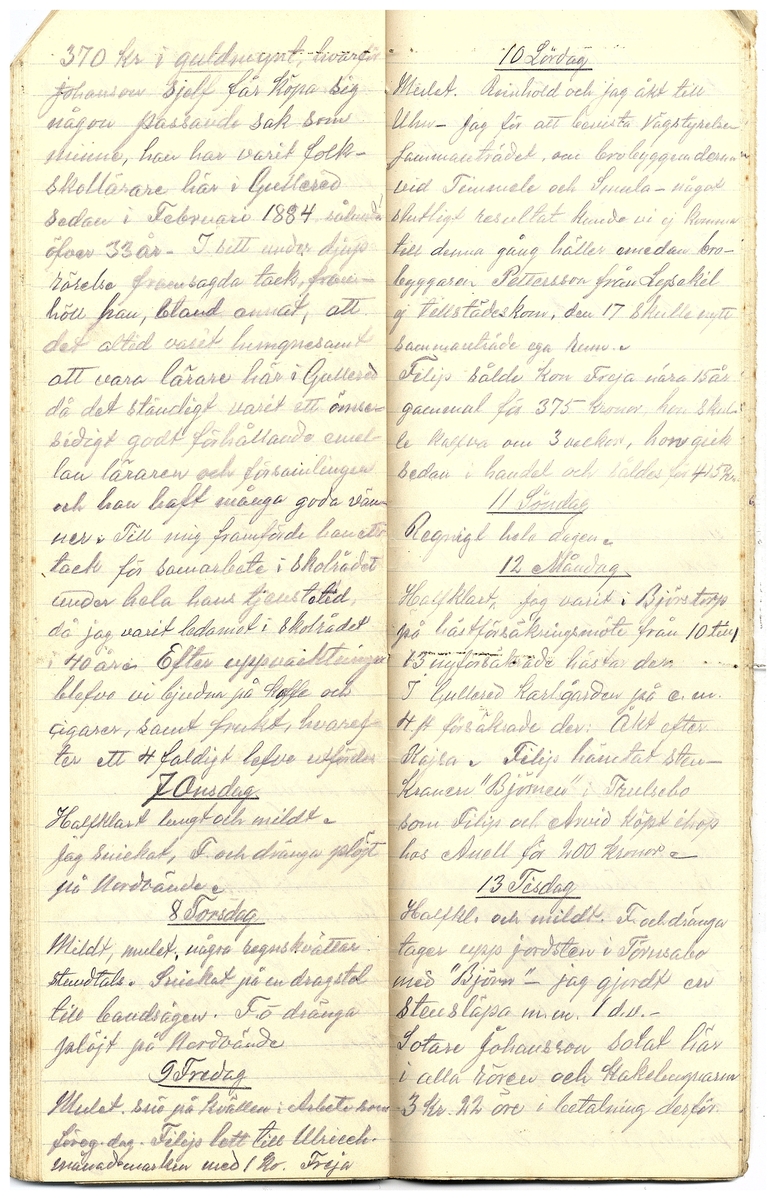 370 kr i guldmynt, hvarför
Johanson sjelf får köpa sig
någon passande sak som
minne, han har varit folk-
skollärare här i Gullered
sedan i Februari 1884 således
öfver 33 år - I ett under djup
rörelse framsagda tack, fram-
höll han, bland annat, att
det altid varit
att vara lärare här i Gullered
då det ständigt varit ett ömse-
sidigt godt förhållande emel-
lan läraren och församlingen
och han haft många goda vän-
ner. Till mig framförde han ett
tack för samarbete i skolrådet
under hela hans tjenstetid,
då jag varit ledamot i Skolrådet
i 40 år. Efter uppvaktningen
blefvo vi bjudna på kaffe och
cigarer, samt frukt, hvaref-
ter ett 4 faldigt lefve utfördes
7 Onsdag
Halfklart lugnt och mildt.
Jag snickat, F. och dränga plöjt
på Nordvände.
8 Torsdag
Mildt, mulet, några regnskvättar
stundtals. Snickat på en dragstol
till bandsågen. F. o dränga
plöjt på Nordvände
9 Fredag
Mulet. snö på kvällen. Arbete som
föreg. dag. Filip lett till Ulriceh.
månadsmarken med 1 ko. Freja
10 Lördag
Mulet. Reinhold och jag åkt till
Uhn - jag för att bevista Vägstyrelse
sammanträdet, om brobyggnaderna
vid Timmele och Smula - något
slutligt resultat kunde vi ej komma
till denna gång häller emedan bro-
byggaren Pettersson från Lysekil
ej tillstädeskom, den 17 skulle nytt
sammanträde ega rum.
Filip sålde kon Freja nära 15 år
gammal för 375 kronor, hon skul-
le kalfva om 3 veckor, hon gick
sedan i handel och såldes för 415 kr.
11 Söndag
Regnigt hela dagen.
12 Måndag
Halfklart, jag varit i Björstorp
på hästförsäkringsmöte från 10 till 1
13 nyförsäkrade hästar der
I Gullered Karlgården på e. m.
4 st försäkrade der: Åkt efter
Kajsa. Filip hämtat sten-
kranen "Björnen" i Trulsebo
som Filip och Arvid köpt ihop
hos Anell för 200 kronor.
13 Tisdag
Halfkl. och mildt. F. och dränga
tager upp jordsten i
med "Björn" - jag gjordt en
stensläpa m.m. 1 d.v. -
Sotare Johansson sotat här
i alla rören och kakelugnarna
3 kr. 22 öre i betalning derför.